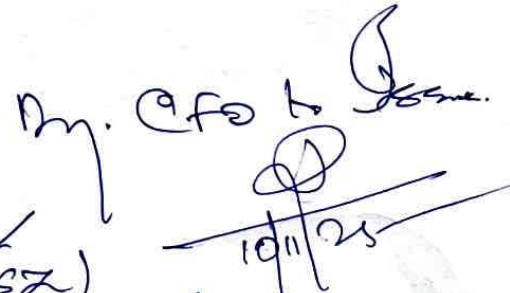 Dy. CFO to Issue.
10/11/25
SZ)